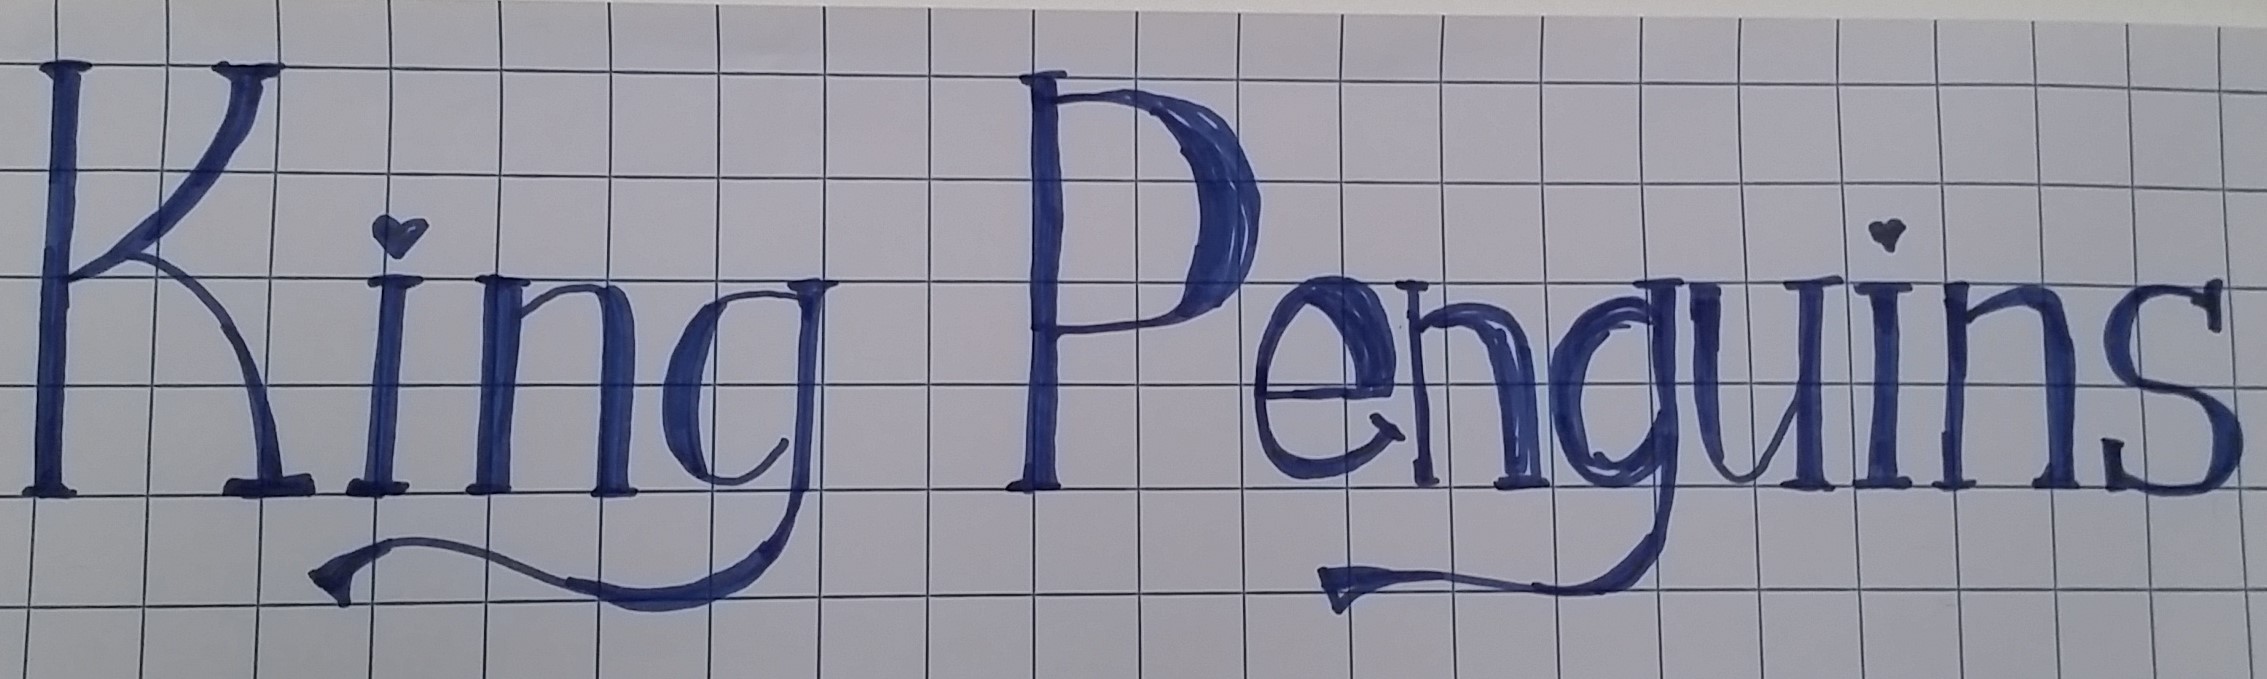 King Penguins